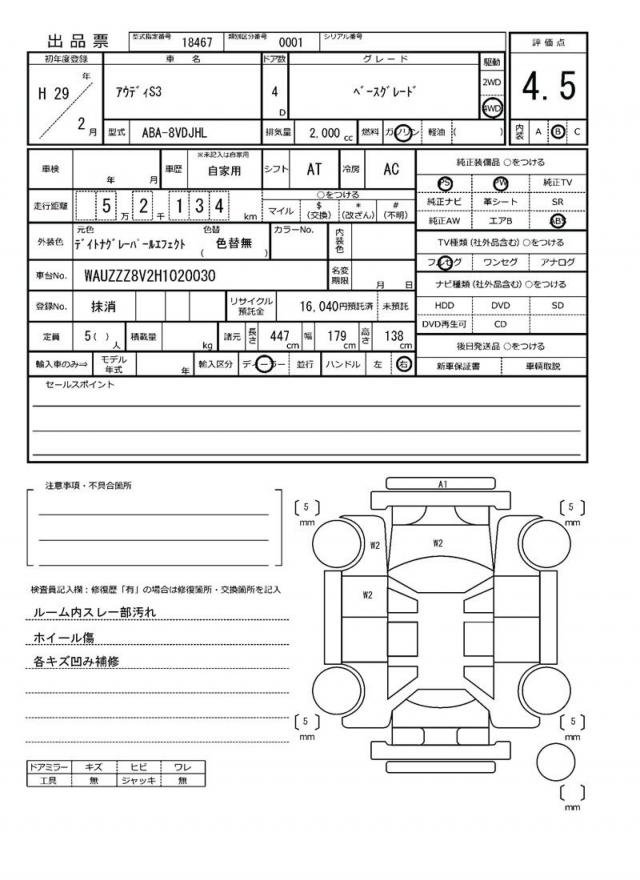 出品票 型式指定番号 18467 類別区分番号 0001 シリアル番号
初年度登録 車名 ドア数 グレード 駆動 評価点
H 29 年 2 月 アウディS3 4 D ベースグレード 2WD 4WD 4.5
型式 ABA-8VDJHL 排気量 2,000 cc 燃料 ガソリン 軽油 ( ) 内装 A B C
車検 年 月 車歴 ※未記入は自家用 自家用 シフト AT 冷房 AC 純正装備品 ○をつける
PS PW 純正TV
走行距離 5 万 2 千 1 3 4 km ○をつける
マイル $ (交換) * (改ざん) # (不明)
純正ナビ 革シート SR
純正AW エアB ABS
外装色 元色 デイトナグレーパールエフェクト 色替 ( 色替無 ) カラーNo. 内装色
TV種類 (社外品含む) ○をつける
フルセグ ワンセグ アナログ
車台No. WAUZZZ8V2H1020030 名変期限 月 日
ナビ種類 (社外品含む) ○をつける
登録No. 抹消 リサイクル預託金 16,040円預託済 未預託
HDD DVD SD
DVD再生可 CD
定員 5 ( ) 人 積載量 kg 諸元 長さ 447 cm 幅 179 cm 高さ 138 cm
後日発送品 ○をつける
輸入車のみ⇒ モデル年式 年 輸入区分 ディーラー 並行 ハンドル 左 右
新車保証書 車輌取説
セールスポイント
注意事項・不具合箇所
検査員記入欄：修復歴「有」の場合は修復箇所・交換箇所を記入
ルーム内スレ一部汚れ
ホイール傷
各キズ凹み補修
ドアミラー キズ ヒビ ワレ
工具 無 ジャッキ 無
A1
5 mm
5 mm
W2
W2
W2
5 mm
5 mm
mm